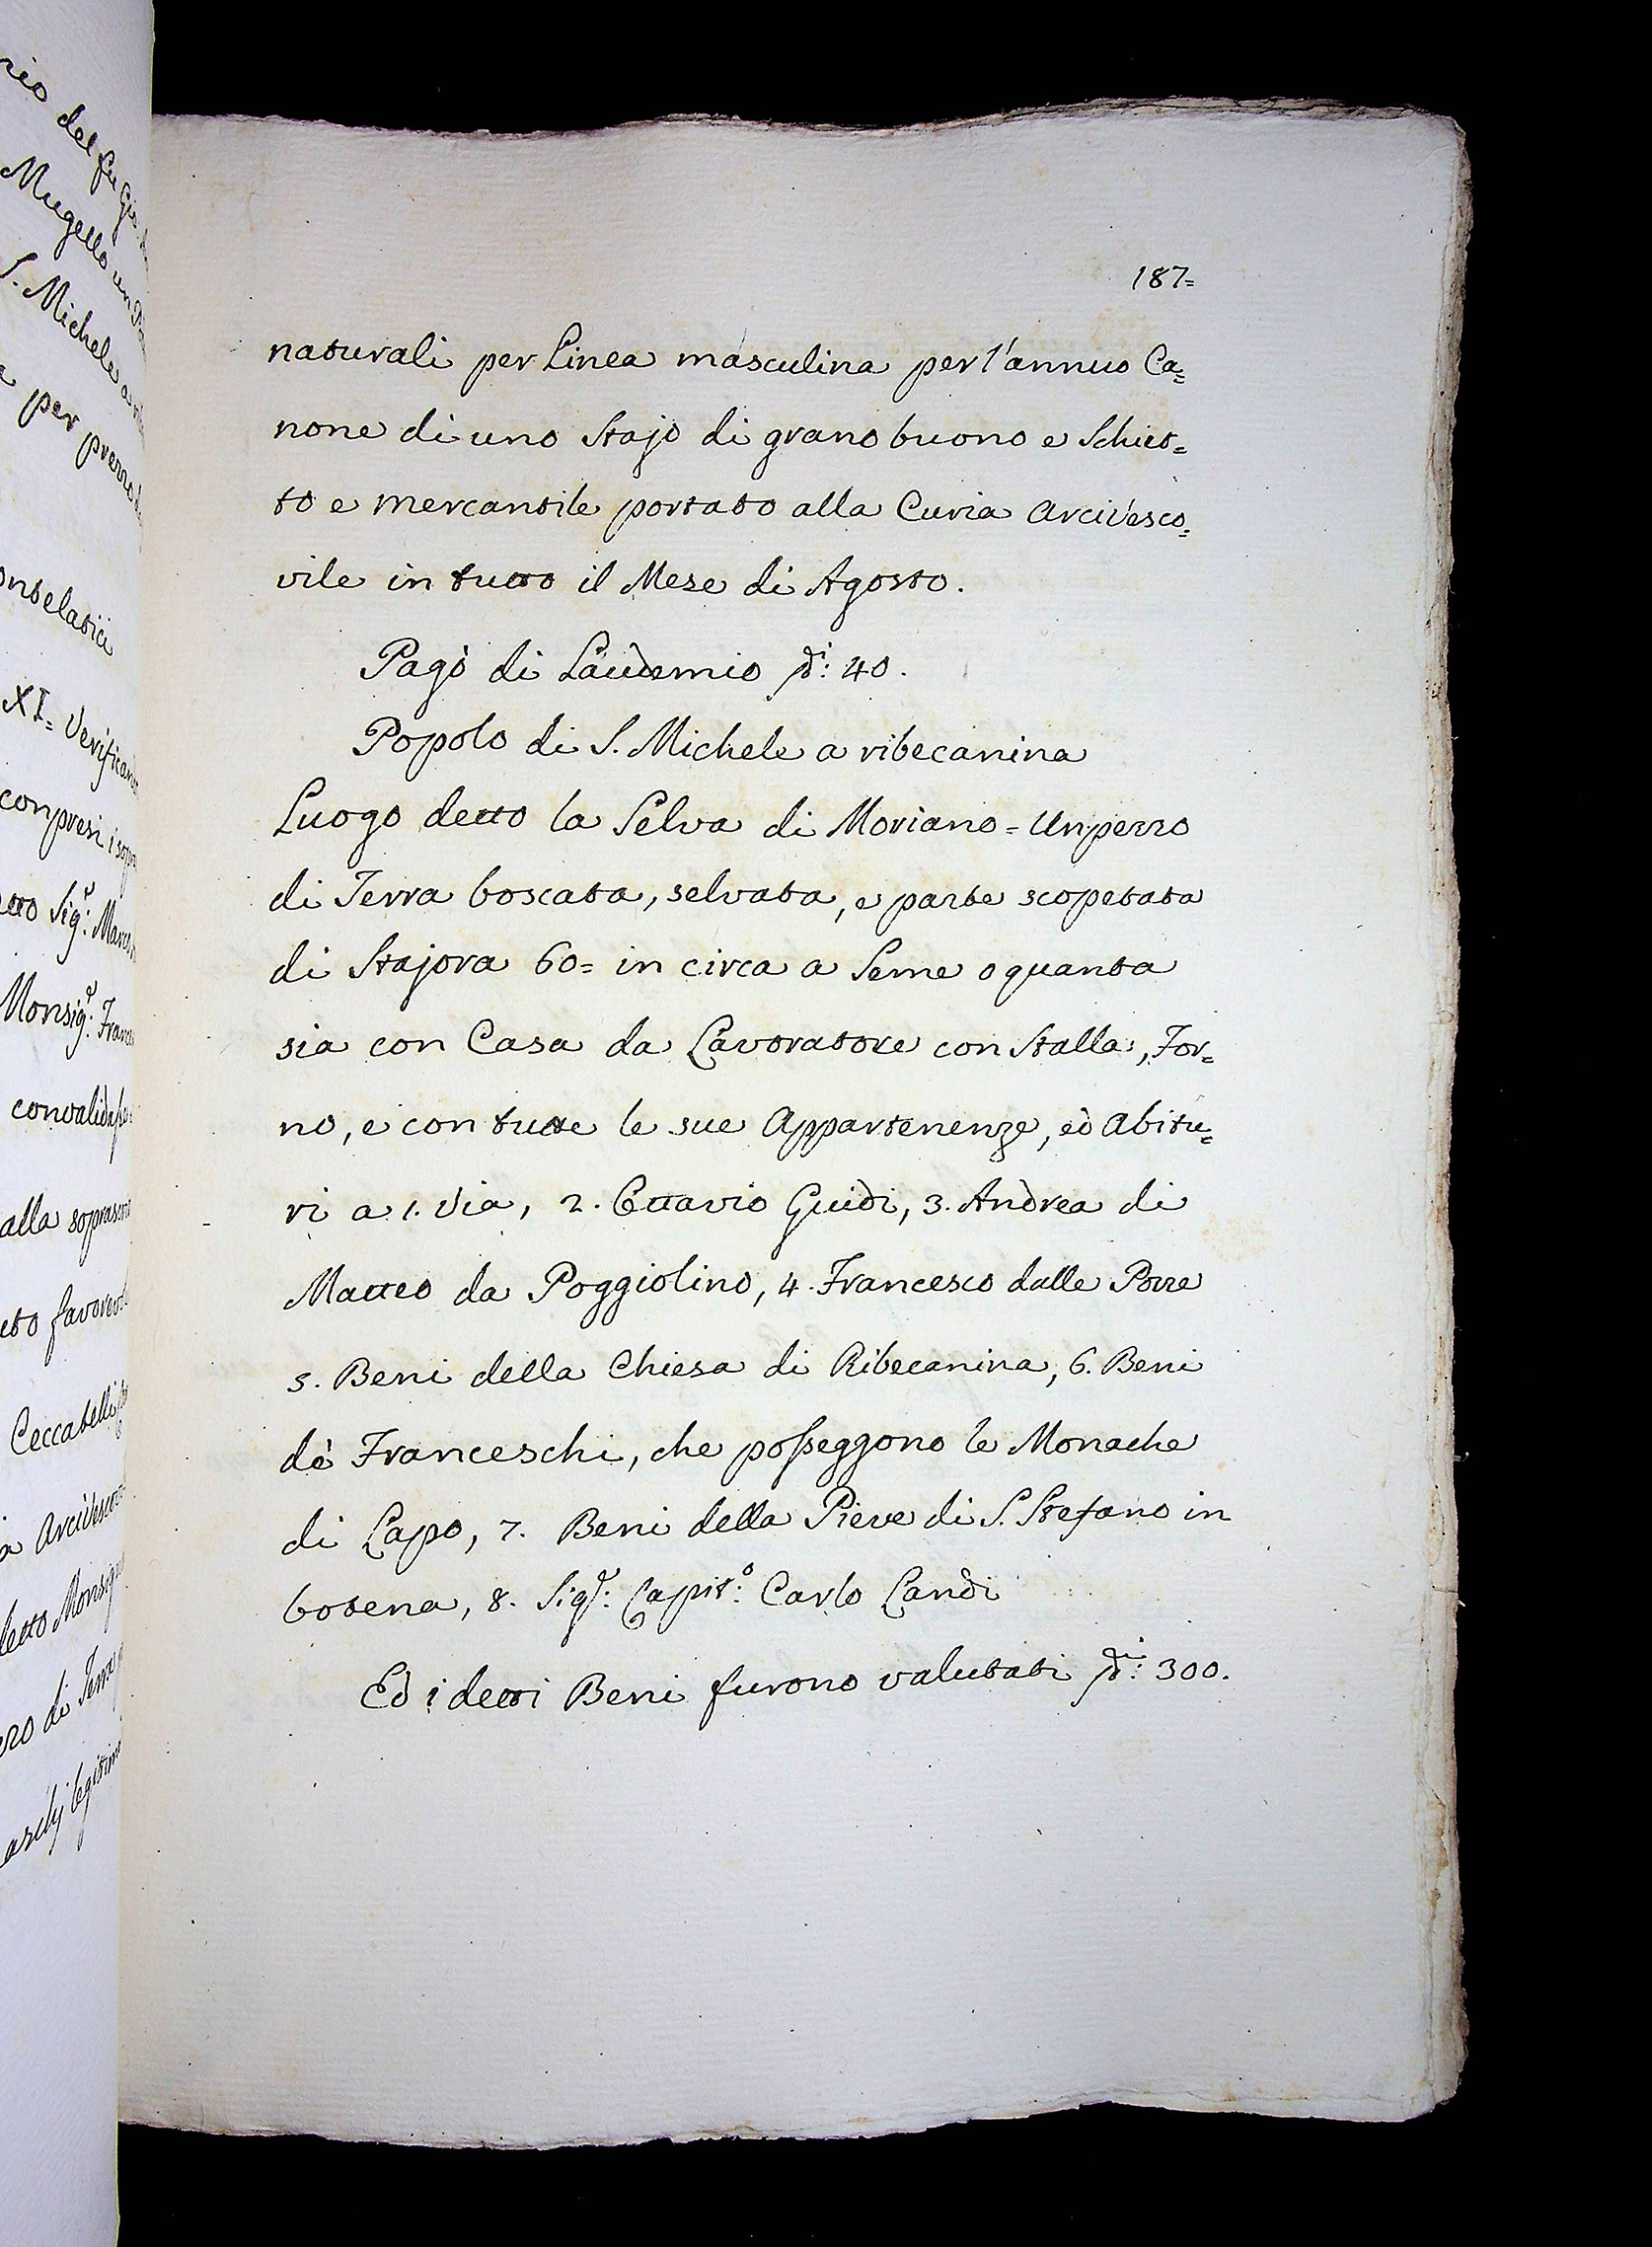 187=
naturali per Linea masculina per l'annuo Ca=
none di uno Stajo di grano buono e Schiet=
to e mercantile portato alla Curia Arcivesco=
vile in tutto il Mese di Agosto.
Pagò di Laudemio di: 40.
Popolo di S. Michele a ribecanina
Luogo detto la Selva di Moriano = Un pezzo
di Terra boscata, selvata, e parte scopetata
di Stajora 60= in circa a Seme o quanta
sia con Casa da Lavoratore con Stalla, For=
no, e con tutte le sue Appartenenze, ed Abitu=
ri a 1. Via, 2. Ottavio Guidi, 3. Andrea di
Matteo da Poggiolino, 4. Francesco dalle Pozze
5. Beni della Chiesa di Ribecanina, 6. Beni
de' Franceschi, che posseggono le Monache
di Lapo, 7. Beni della Pieve di S. Stefano in
botena, 8. Sigr: Capito: Carlo Landi
Ed i detti Beni furono valutati di: 300.
Mugello un
S. Michele a
per prezzo
XI= Verifican
compresi i sopra
Monsigr: Franc
alla soprascr
Ceccatelli
Arcivescov
detto Monsig
di Terra
legitim